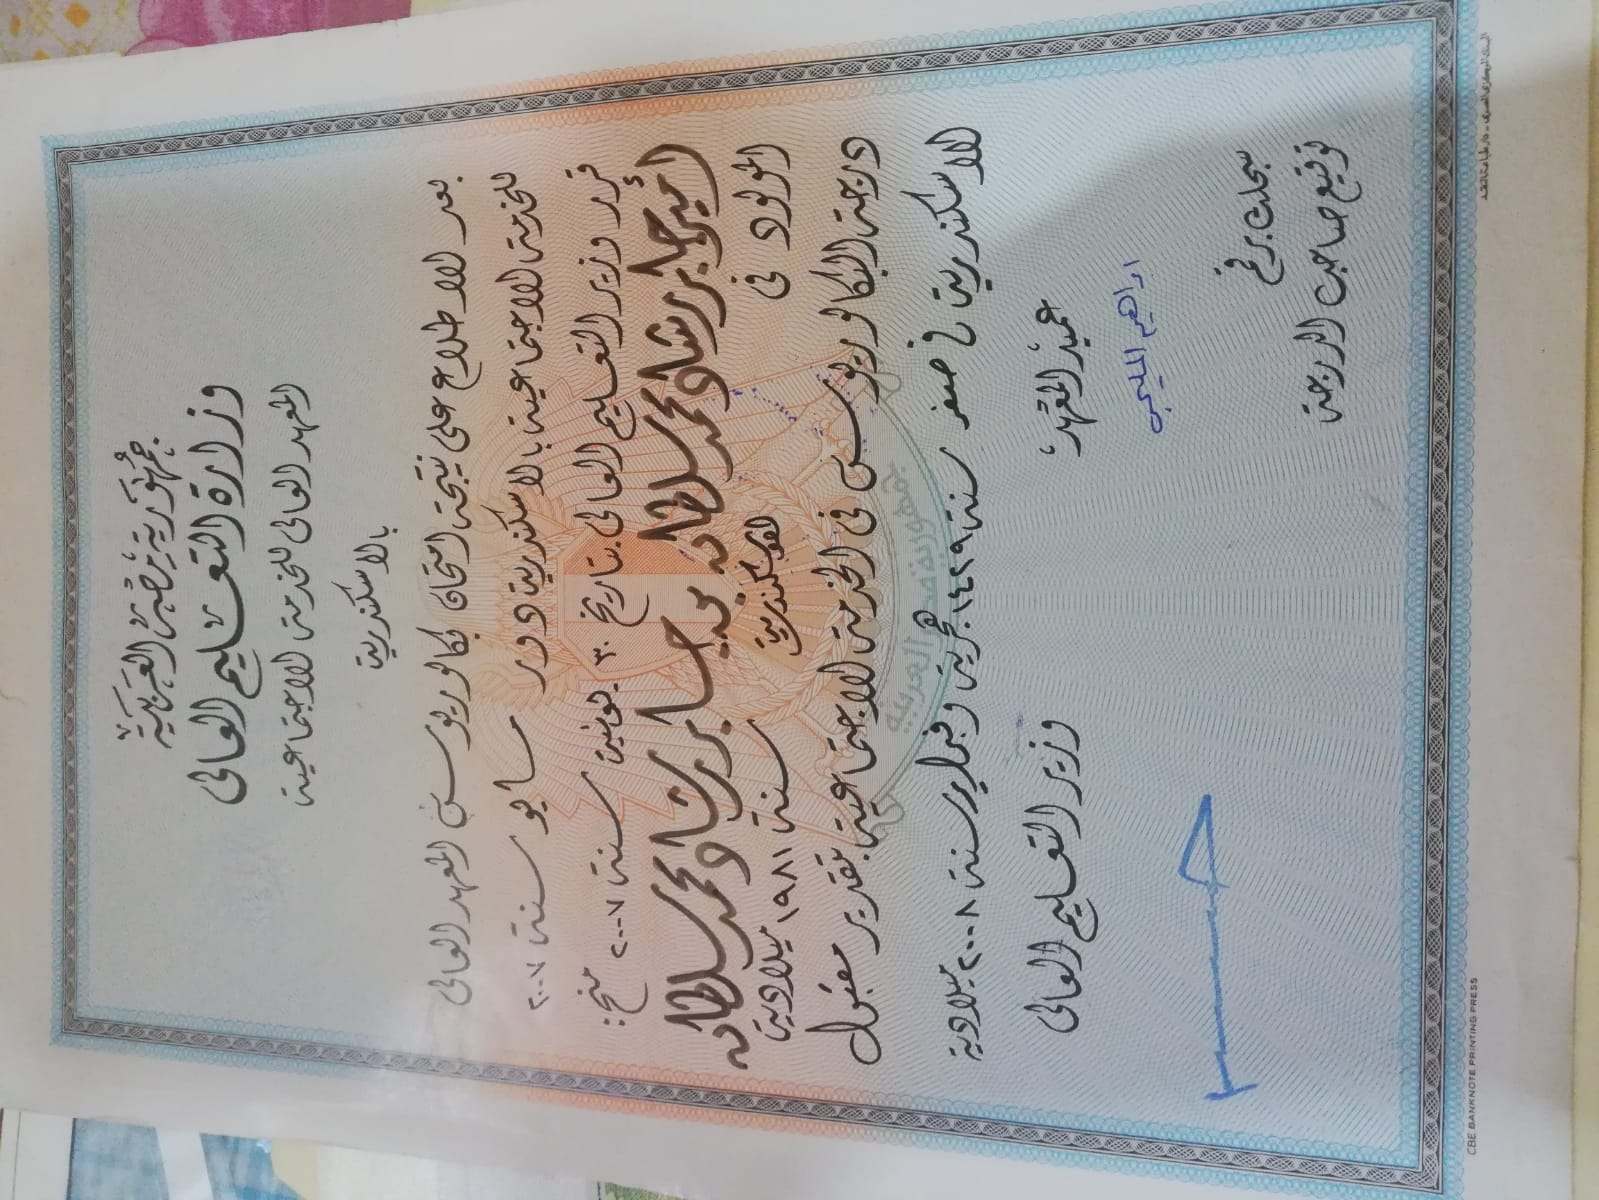 جمهورية مصر العربية
وزارة التعليم العالى
المعهد العالى للخدمة الاجتماعية
بالاسكندرية
بعد الاطلاع على نتيجة امتحان بكالوريوس المعهد العالى
للخدمة الاجتماعية بالاسكندرية دور مايو سنة ٢٠٠٧
قرر وزير التعليم العالى بتاريخ ٣٠ يونيه سنة ٢٠٠٧ منح :
أمير جابر رشاد محمد سلطان جابر رشاد محمد سلطان
المولود فى الاسكندرية سنة ١٩٨١ ميلادية
درجة البكالوريوس فى الخدمة الاجتماعية بتقدير مقبول
الاسكندرية فى صفر سنة ١٤٢٩ هجرية وفبراير سنة ٢٠٠٨ ميلادية
عميد المعهد، وزير التعليم العالى
سجلت برقم
توقيع صاحب الدرجة
جمهورية مصر العربية
CBE BANKNOTE PRINTING PRESS